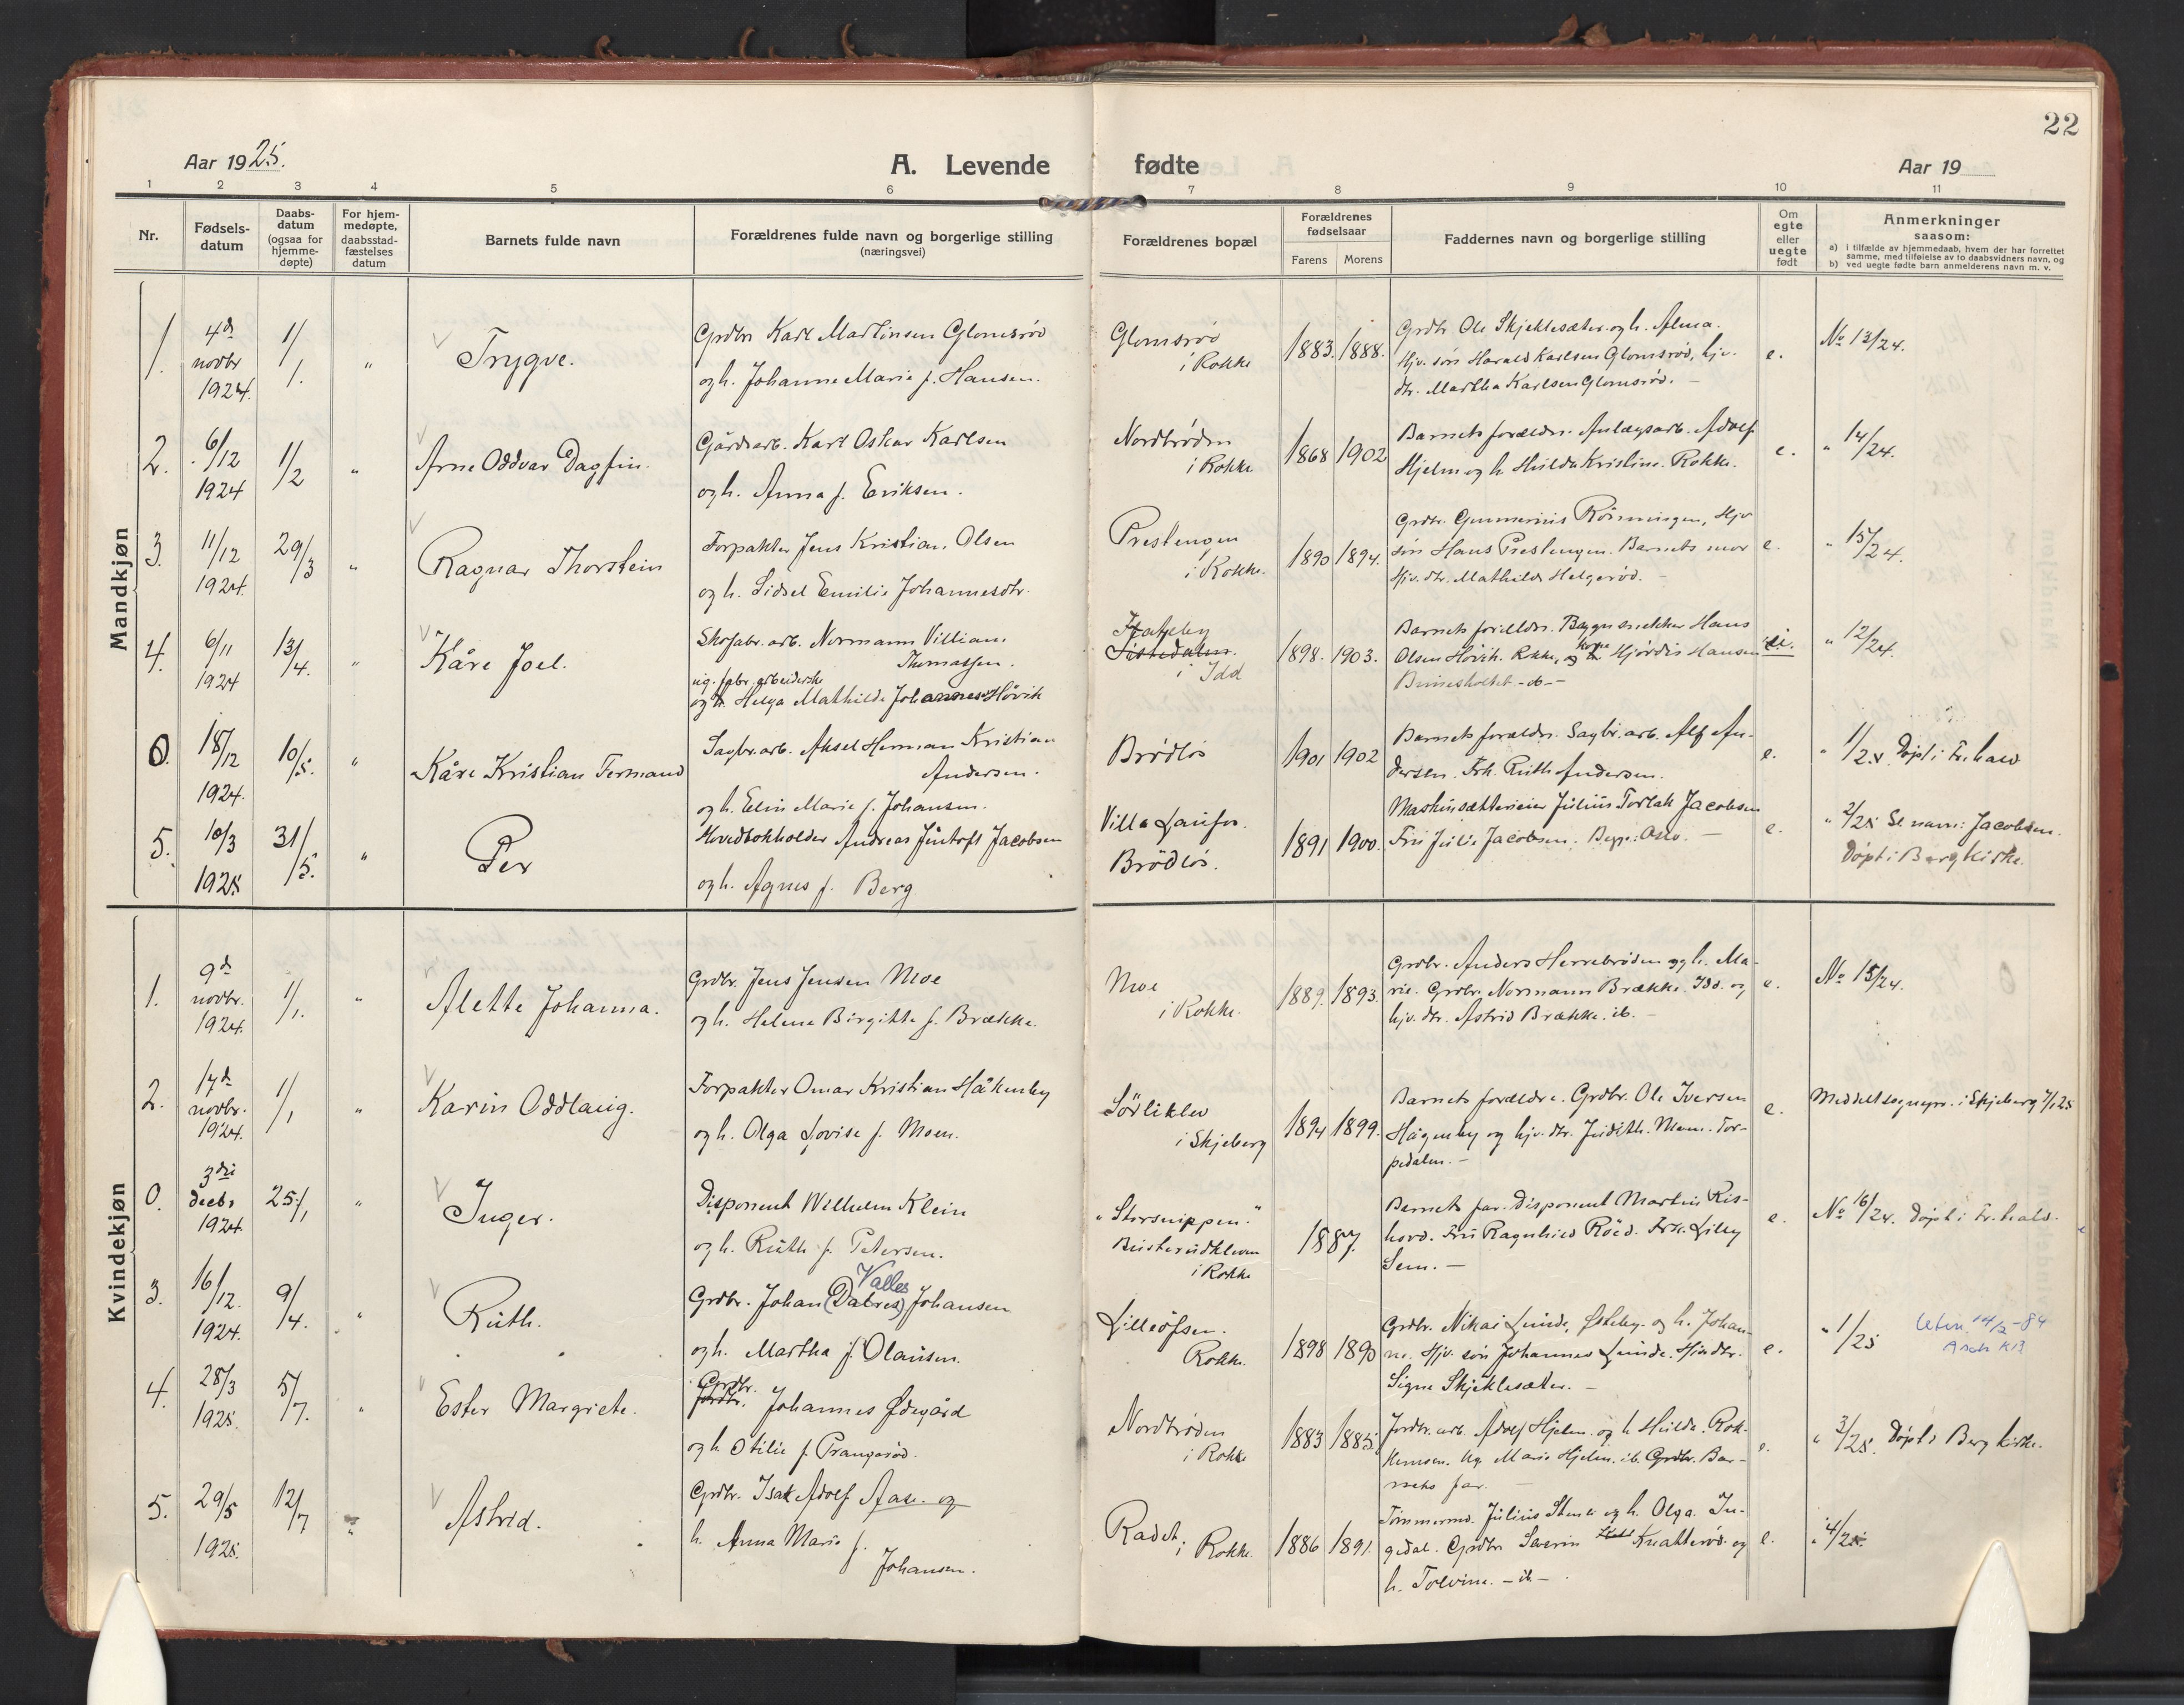 22
Aar 1925.
A. Levende fødte
Aar 19
1 2 3 4 5 6 7 8 9 10 11
Nr.
Fødsels-
datum
Daabs-
datum
(ogsaa for
hjemme-
døpte)
For hjem-
medøpte,
daabsstad-
fæstelses
datum
Barnets fulde navn
Forældrenes fulde navn og borgerlige stilling
(næringsvei)
Forældrenes bopæl
Forældrenes
fødselsaar
Farens Morens
Faddernes navn og borgerlige stilling
Om
egte
eller
uegte
født
Anmerkninger
saasom:
a) i tilfælde av hjemmedaab, hvem der har forrettet
samme, med tilføielse av to daabsvidners navn, og
b) ved uegte fødte barn anmelderens navn m. v.
Mandkjøn
1. 4de novbr 1924. 1/1. " Trygve.
Grdbr Karl Martinsen Glomsrød
og h. Johanne Marie f. Hansen.
Glomsrød
i Rokke
1883. 1888.
Grdbr Ole Skjeklesæter og h. Alma.
Hjv. søn Harald Karlsen Glomsrød, hjv.
dtr. Martha Karlsen Glomsrød. -
e. No 13/24.
2. 6/12 1924 1/2 " Arne Oddvar Dagfin.
Gårdsarb. Karl Oskar Karlsen
og h. Anna f. Eriksen.
Nordbrøden
i Rokke
1868 1902
Barnets forældre. Anlægsarb. Adolf
Hjelm og h Hulda Kristine. Rokke.
e. " 14/24.
3. 11/12 1924. 29/3 " Ragnar Thorstein
Forpakter Jens Kristian Olsen
og h. Sidsel Emilie Johannesdtr.
Prestengen
i Rokke.
1890 1894.
Grdbr. Gunnerius Rönningen, Hjv
søn Hans Prestengen. Barnets mor
Hjv. dtr. Mathilde Helgerød. -
e. " 15/24.
4. 6/11 1924 13/4. " Kåre Joel.
Skofabr. arb. Normann Villiam
Thomassen.
ug. fabr. arbeiderske
og Helga Mathilde Johannes Høvik
Tistedalen.
i Idd
1898. 1903.
Barnets forældre. Byggmesnekker Hans
Olsen Høvik. Rokke, og Hjørdis Hansen
" 12/24.
0. 18/12 1924. 10/5. " Kåre Kristian Fermand
Sagbr. arb. Aksel Herman Kristian
Andersen.
og h. Elin Marie f. Johansen.
Brödløs
1901 1902
Barnets forældre. Sagbr. arb. Alf An-
dersen. Frk. Ruth Andersen.
e. " 1/25. Døpt i Fr.hald
5. 10/3 1925 31/5. " Per
Hovedbokholder Andreas Juntoft Jacobsen
og h. Agnes f. Berg
Villa Laufor.
Brödløs.
1891 1900.
Maskinsættereier Julius Torlak Jacobsen
Fru Julie Jacobsen. Begge: Oslo. -
e. " 2/25 Sl.navn: Jacobsen.
Døpt i Berg kirke.
Kvindekjøn
1. 9de novbr. 1924. 1/1. " Alette Johanna.
Grdbr. Jens Jensen Moe
og h. Helene Birgitte f. Brække.
Moe
i Rokke.
1889. 1893.
Grdbr. Anders Herrebrøden og h. Ma-
rie. Grdbr. Normann Brække. Idd. og
hjv. dtr. Astrid Brække. ib. -
e. No 15/24.
2. 17de novbr. 1924. 1/1 " Karin Oddlaug.
Forpakter Omar Kristian Håkenby
og h. Olga Lovise f. Moen.
Sörliklev
i Skjeberg
1894 1899.
Barnets forældre. Grdbr. Ole Iversen
Hågenby og hjv. dtr. Judith Moen. Tor-
pedalen. -
e. Meddelt sognepr. i Skjeberg 7/1 25
0. 3die decbr 1924. 25/1 " Inger.
Disponent Wilhelm Klein
og h. Ruth f. Petersen.
"Storsnippen."
Busterudkleven
i Rokke
1887.
Barnets far. Disponent Martin Ris-
hovd. Fru Ragnhild Röed. Frk. Lilly
Sem. -
e. No 16/24. Døpt i Fr.hald.
3. 16/12. 1924. 9/4. " Ruth.
Valles
Grdbr. Johan (Dalres) Johansen
og h. Martha f. Olausen.
Lilleöfsen.
Rokke.
1898 1890
Grdbr. Nikai Lunde, Østeby. og h. Johan-
ne. Hjv. søn Johannes Lunde. Hjv. dtr.
Signe Skjeklesæter. -
e. " 1/25
4. 28/3 1925. 5/7. " Ester Margrete.
Grdbr.
Johannes Ødegård
og h. Otilie f. Prangerød.
Nordbrøden
i Rokke
1883 1885
Jordbr. arb. Adolf Hjelm. og h Hulda. Rok-
ke. Ug. Marie Hjelm. ib. Grdbr. Bar-
nets far.
e. " 3/25. Døpt i Berg kirke.
5. 29/5 1925. 12/7 " Astrid.
Grdbr. Isak Adolf Aase. og
h. Anna Marie f.
Johansen.
Radet
i Rokke.
1886 1891.
Tömmermd. Julius Stenli og h. Olga. In-
gedal. Grdbr Severin Knatterød. og
h. Tolvine. - ib -
e. " 4/25.